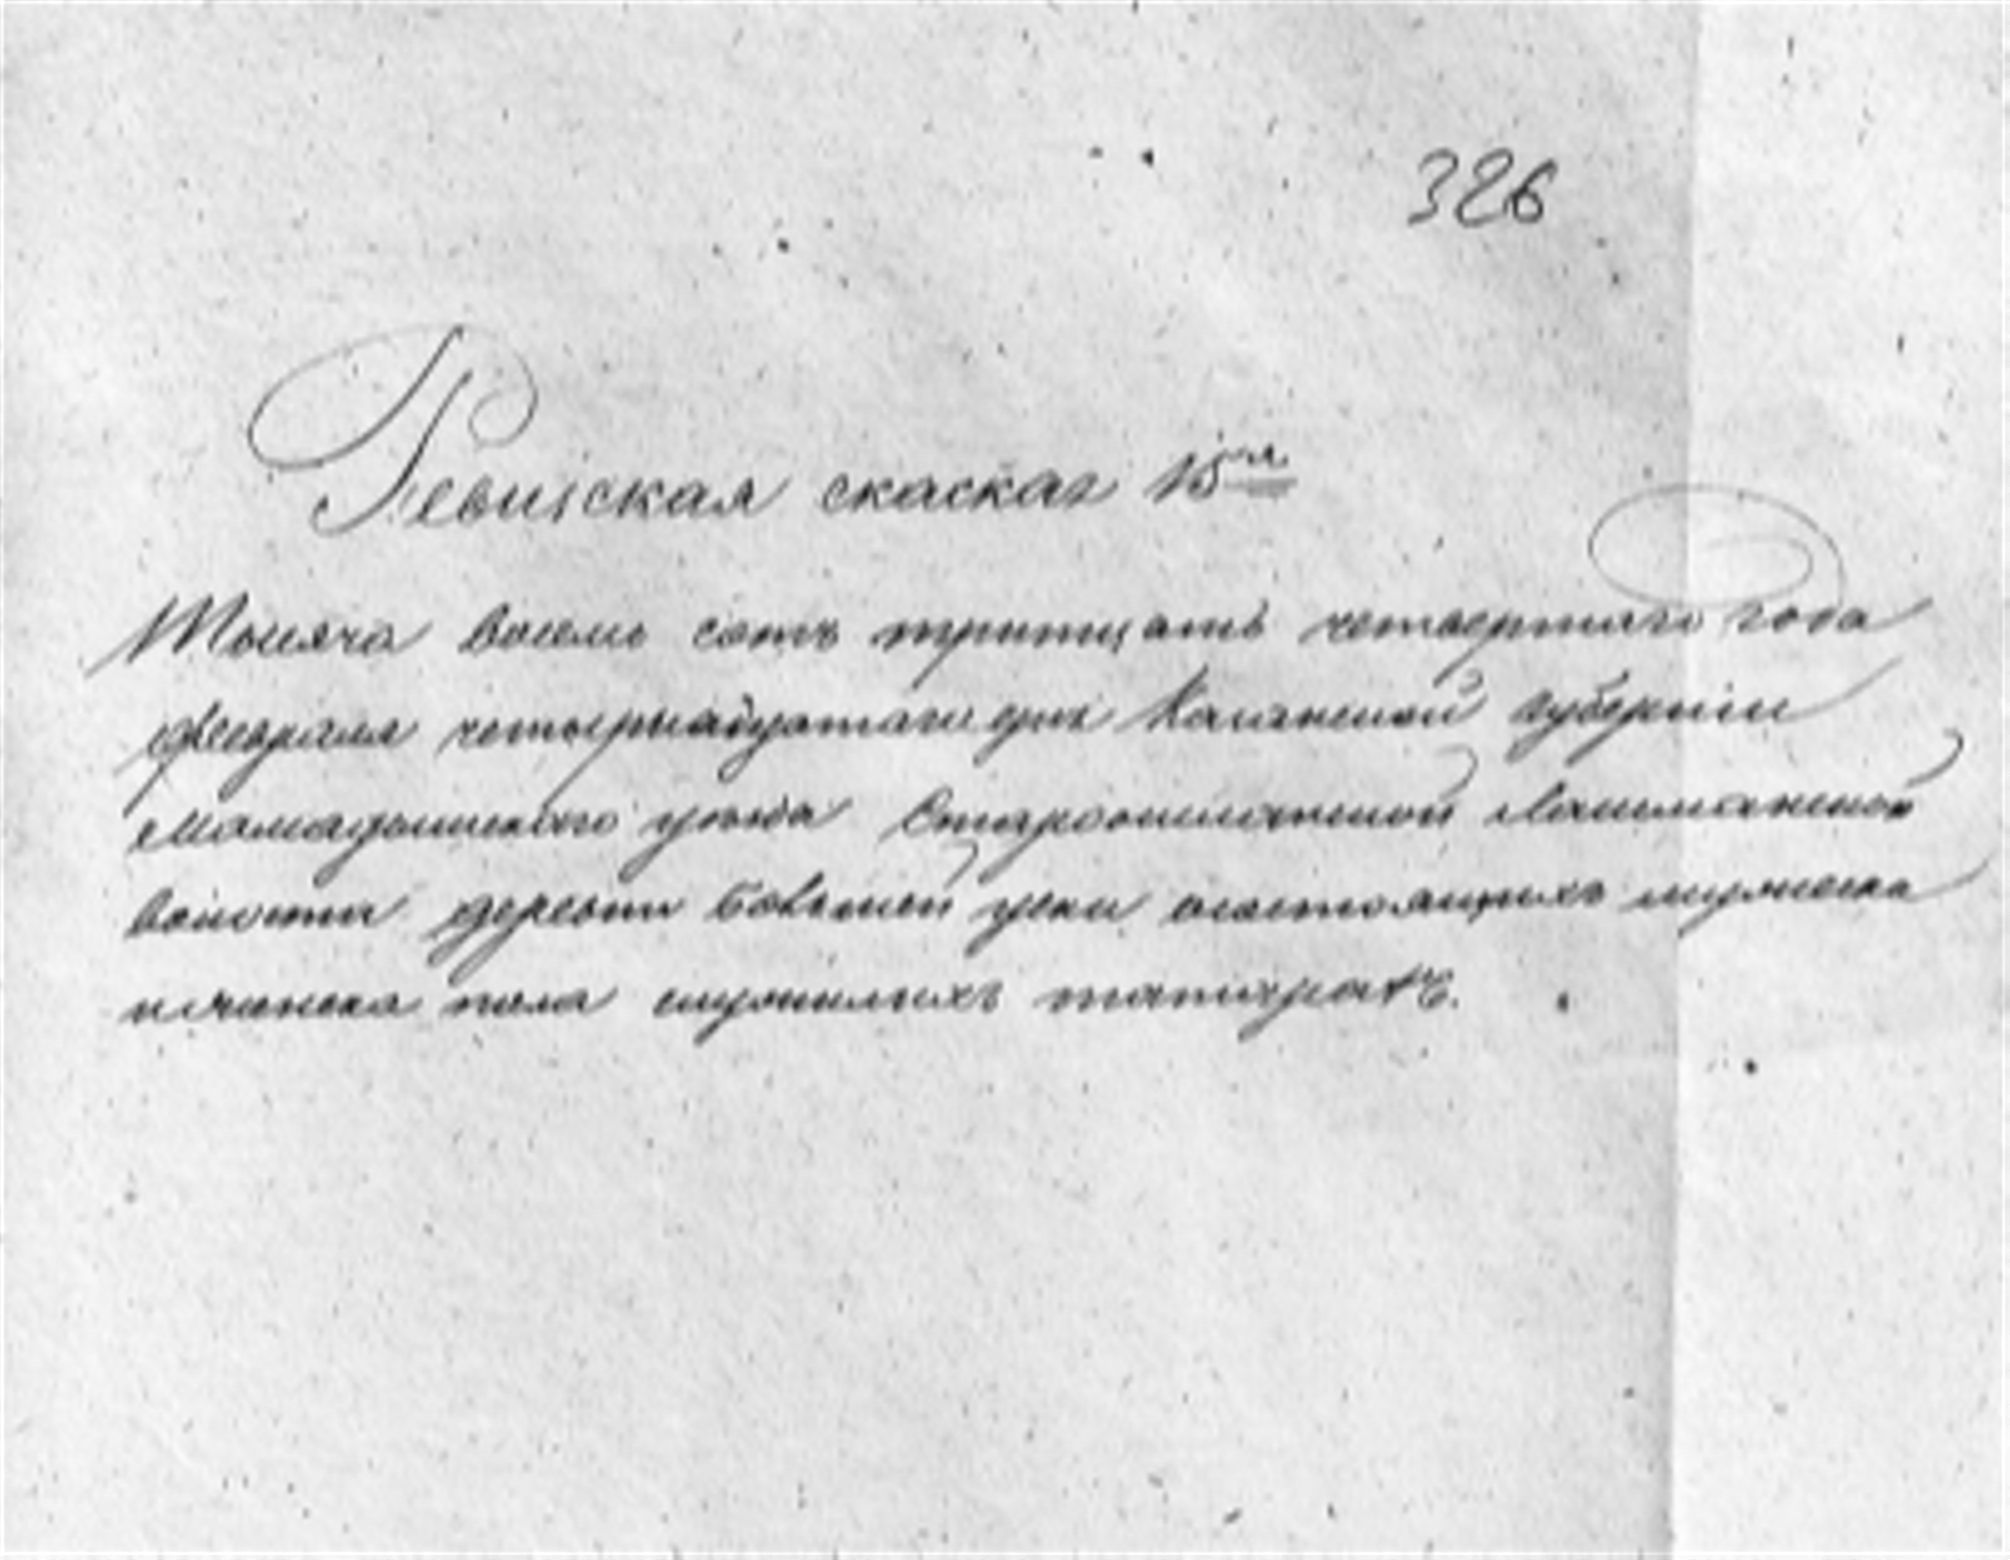 326
Ревизская скаска 15я
Тысяча восемь сотъ тритцать четвертаго года
февраля четырнадцатаго дня Казанской губернии
Мамадышскаго уезда Староошланской Лашманской
волости деревни Большей уени о состоящихъ мужеска
и женска пола служилыхъ татарахъ.